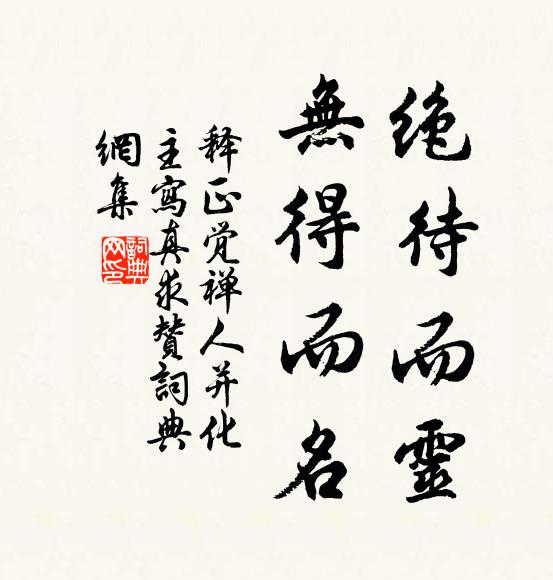 绝待而靈
無得而名
释正觉禅人并化
主寫真求贊詞典
網集
詞典网印